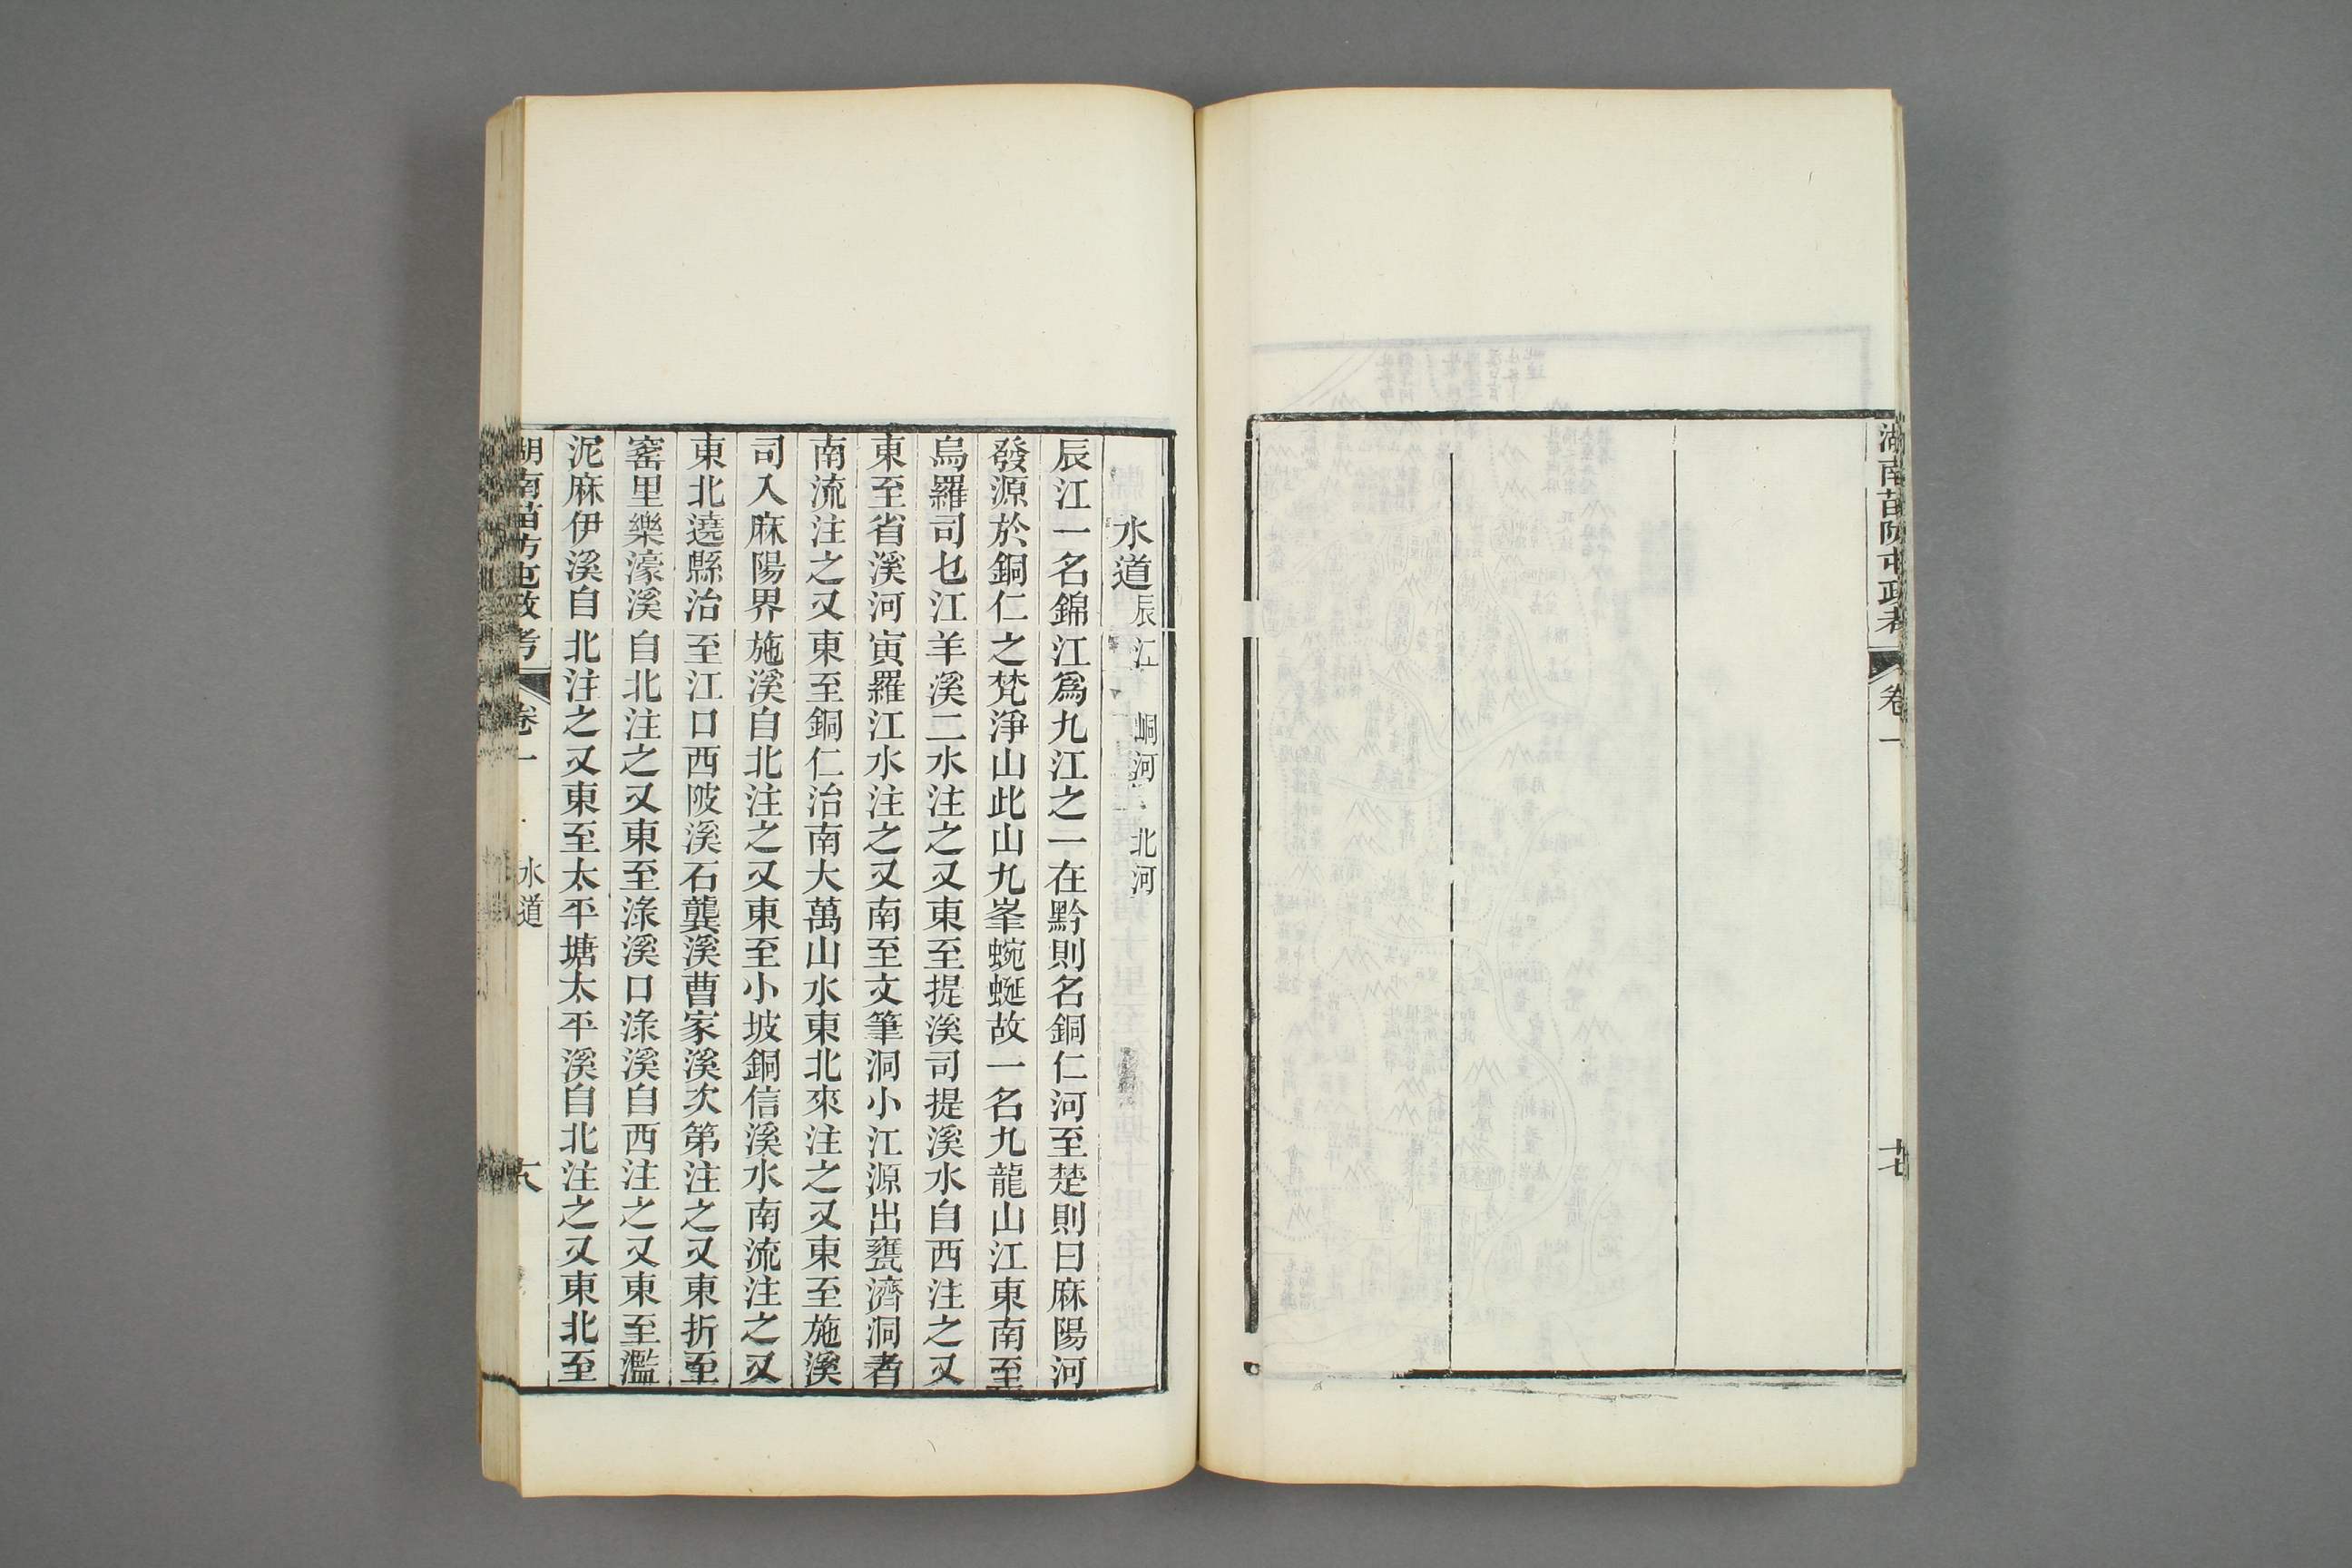 湖南苗防屯政考 卷一
十七
水道 辰江 峒河 北河
辰江一名錦江爲九江之一在黔則名銅仁河至楚則曰麻陽河
發源於銅仁之梵淨山此山九峯蜿蜒故一名九龍山江東南至
烏羅司乜江羊溪二水注之又東至提溪司提溪水自西注之又
東至省溪河寅羅江水注之又南至文筆洞小江源出甕濟洞者
南流注之又東至銅仁治南大萬山水東北來注之又東至施溪
司入麻陽界施溪自北注之又東至小坡銅信溪水南流注之又
東北遶縣治至江口西陂溪石龔溪曹家溪次第注之又東折至
窰里樂濠溪自北注之又東至淥溪口淥溪自西注之又東至濫
泥麻伊溪自北注之又東至太平塘太平溪自北注之又東北至
湖南苗防屯政考 卷一 水道 十八